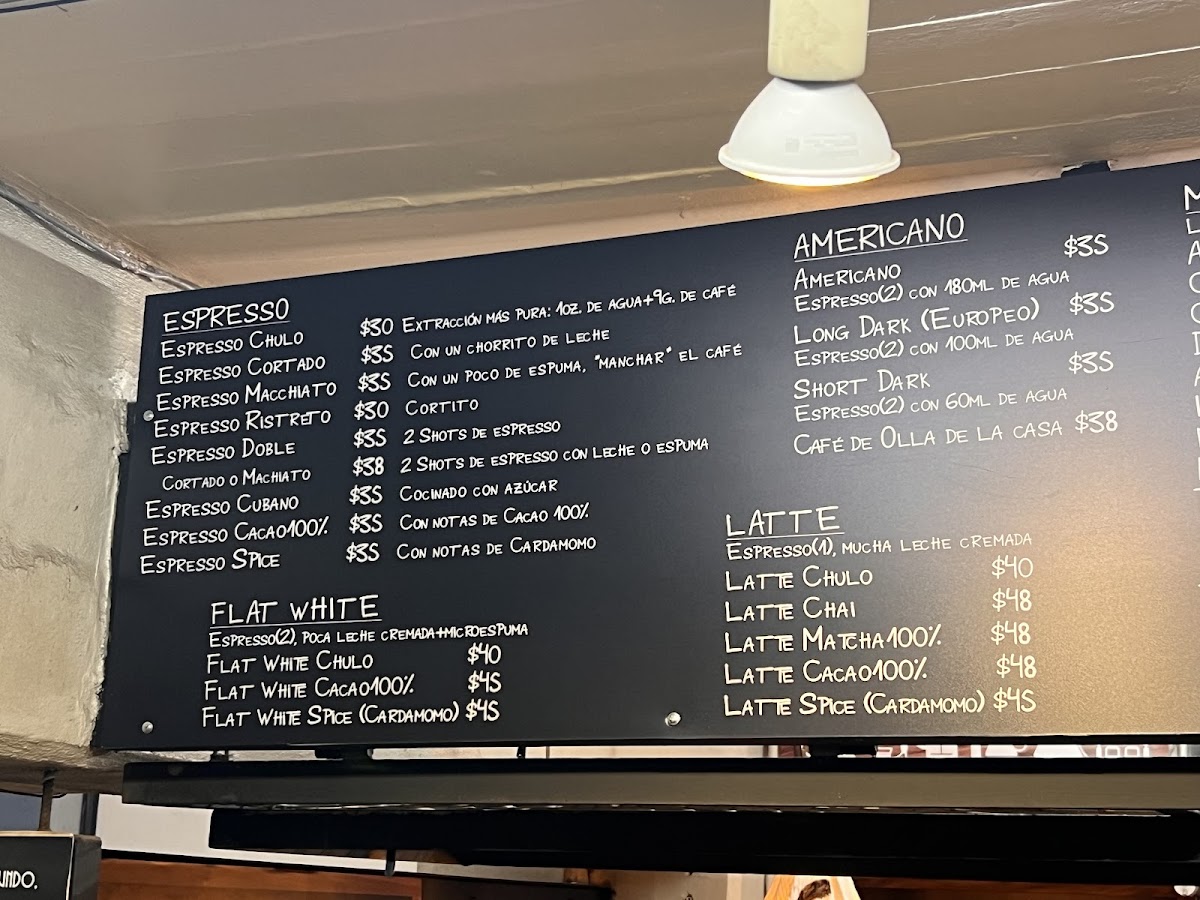 ESPRESSO
ESPRESSO CHULO $30 EXTRACCIÓN MÁS PURA: 1OZ. DE AGUA+9G. DE CAFÉ
ESPRESSO CORTADO $35 CON UN CHORRITO DE LECHE
ESPRESSO MACCHIATO $35 CON UN POCO DE ESPUMA, "MANCHAR" EL CAFÉ
ESPRESSO RISTRETO $30 CORTITO
ESPRESSO DOBLE $35 2 SHOTS DE ESPRESSO
CORTADO O MACHIATO $38 2 SHOTS DE ESPRESSO CON LECHE O ESPUMA
ESPRESSO CUBANO $35 COCINADO CON AZÚCAR
ESPRESSO CACAO100% $35 CON NOTAS DE CACAO 100%
ESPRESSO SPICE $35 CON NOTAS DE CARDAMOMO
FLAT WHITE
ESPRESSO(2), POCA LECHE CREMADA+MICROESPUMA
FLAT WHITE CHULO $40
FLAT WHITE CACAO100% $45
FLAT WHITE SPICE (CARDAMOMO) $45
AMERICANO
AMERICANO $35
ESPRESSO(2) CON 180ML DE AGUA
LONG DARK (EUROPEO) $35
ESPRESSO(2) CON 100ML DE AGUA
SHORT DARK $35
ESPRESSO(2) CON 60ML DE AGUA
CAFÉ DE OLLA DE LA CASA $38
LATTE
ESPRESSO(1), MUCHA LECHE CREMADA
LATTE CHULO $40
LATTE CHAI $48
LATTE MATCHA100% $48
LATTE CACAO100% $48
LATTE SPICE (CARDAMOMO) $45